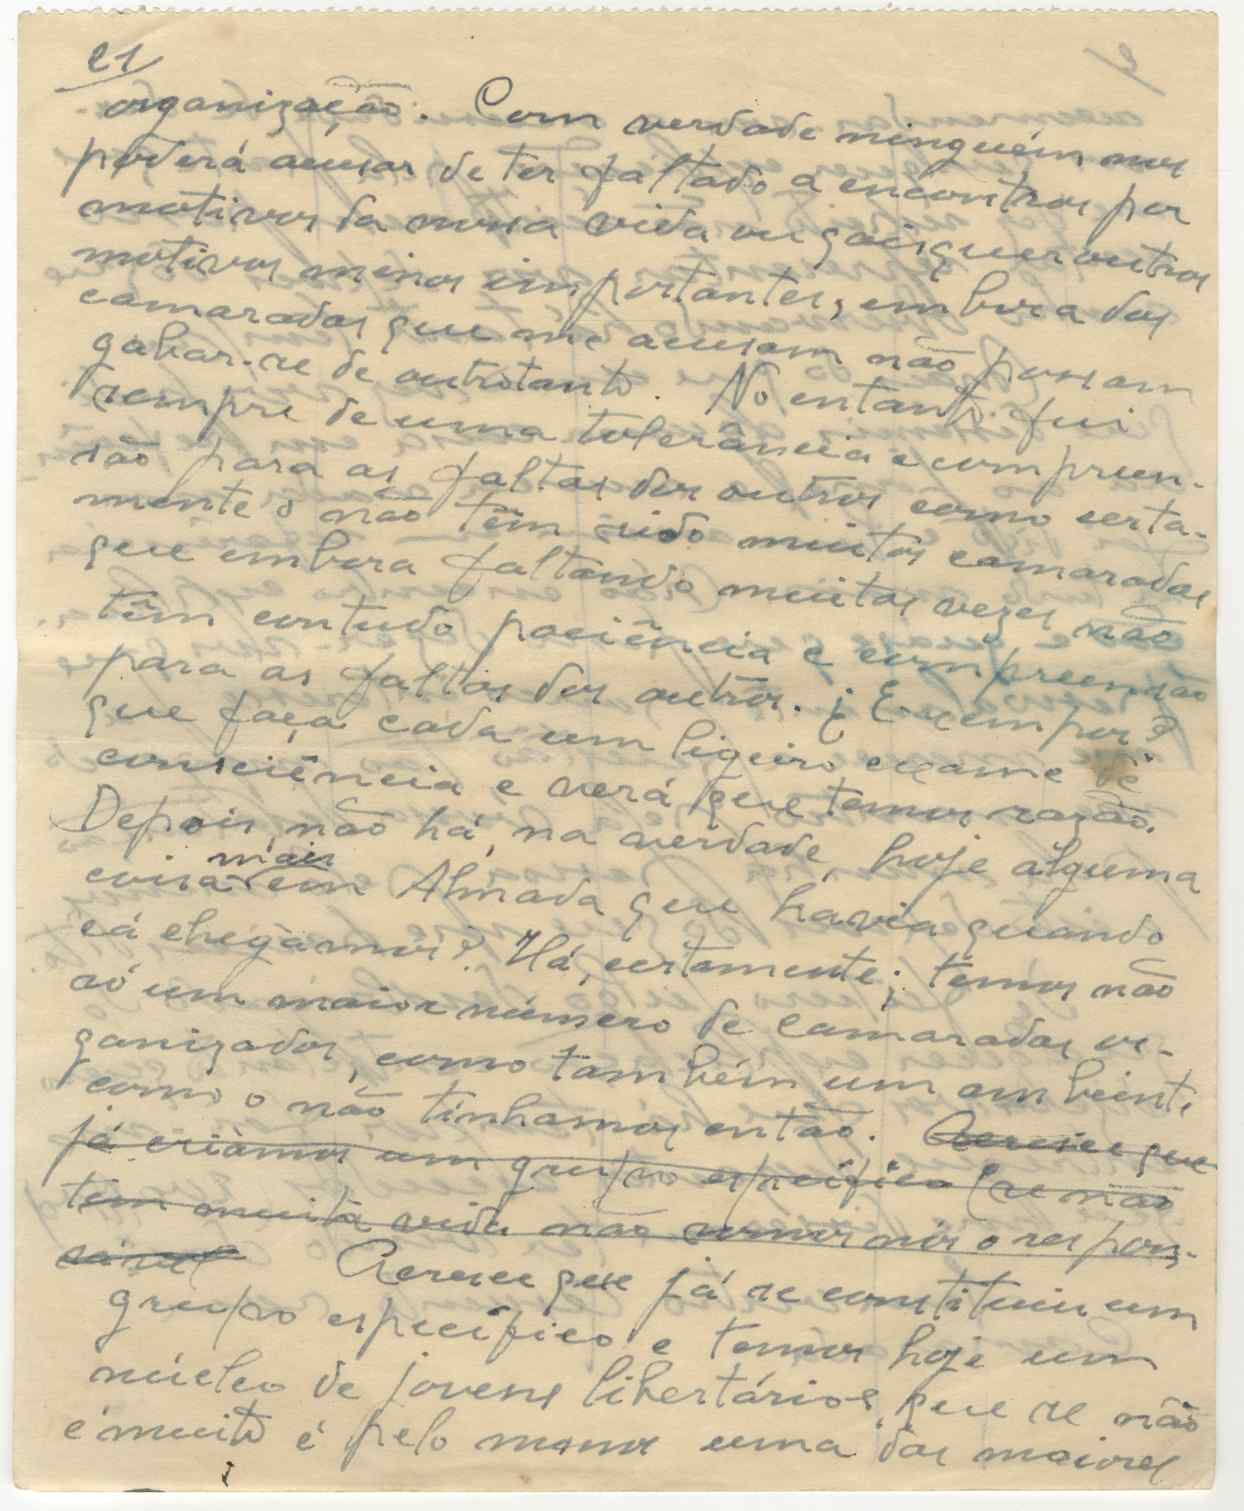 21
organização. Com verdade ninguém nos
poderá acusar de ter faltado a encontros por
motivos da nossa vida ou gaisquer outros
motivos menos importantes, embora dos
camaradas que me acusam não possam
gabar-se de outrotanto. No entanto fui
sempre de uma tolerância e compreen-
são para as faltas dos outros como certa-
mente o não têm sido muitos camaradas
que embora faltando muitas vezes não
têm contudo paciência e compreensão
para as faltas dos outros. ¿Exempos?
que faça cada um ligeiro exame de
consciência e verá que temos razão.
Depois, não há, na verdade, hoje alguma
mais
coisa em Almada que havia quando
cá chegàmos? Há, certamente; temos não
só um maior número de camaradas or-
ganizados, como também um ambiente
como o não tinhamos então. Acresce que
já criàmos um grupo específico (se não
tem muita vida não somos nós o respon-
sável Acresce que já se constituiu um
grupo específico e temos hoje um
núcleo de jovens libertários que se não
é muito é pelo menos uma das maiores